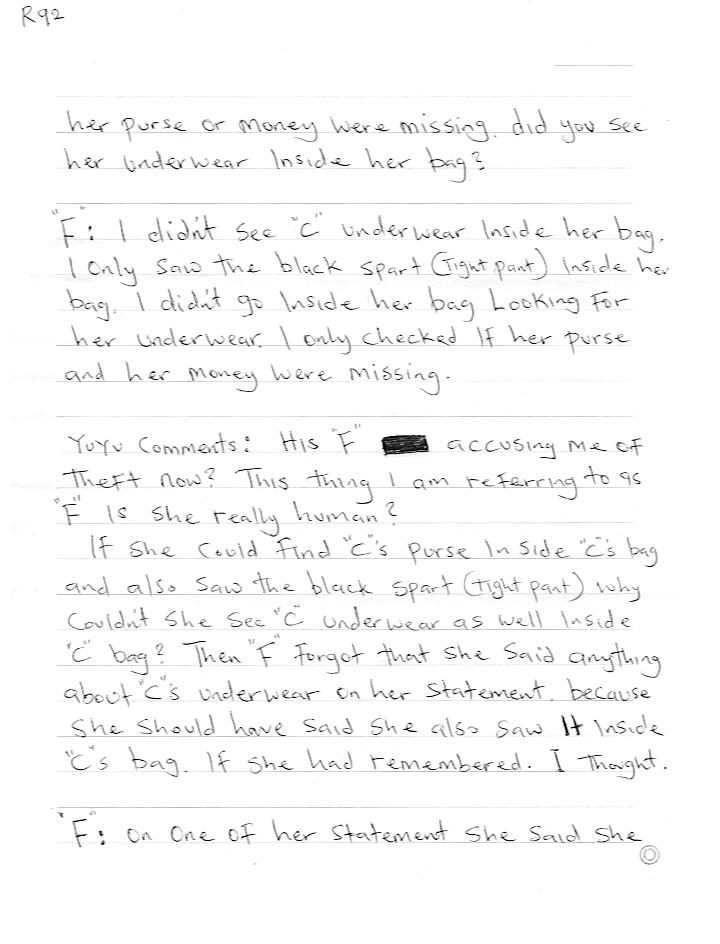 R92
her purse or money were missing. did you see
her underwear Inside her bag?
"F": I didn't see "C" underwear Inside her bag.
I only saw the black spart (Tight pant) inside her
bag. I didn't go Inside her bag Looking For
her underwear. I only checked If her purse
and her money were missing.
YuYu Comments: His "F" accusing me of
Theft now? This thing I am referring to as
"F" Is she really human?
If she could find "C"'s purse In side "C"'s bag
and also saw the black spart (Tight pant) why
Couldn't she see "C" underwear as well Inside
"C" bag? Then "F" forgot that she said anything
about "C"'s underwear on her statement. because
she should have said she also saw It Inside
"C"'s bag. If she had remembered. I Thought.
"F": on One of her Statement She Said She